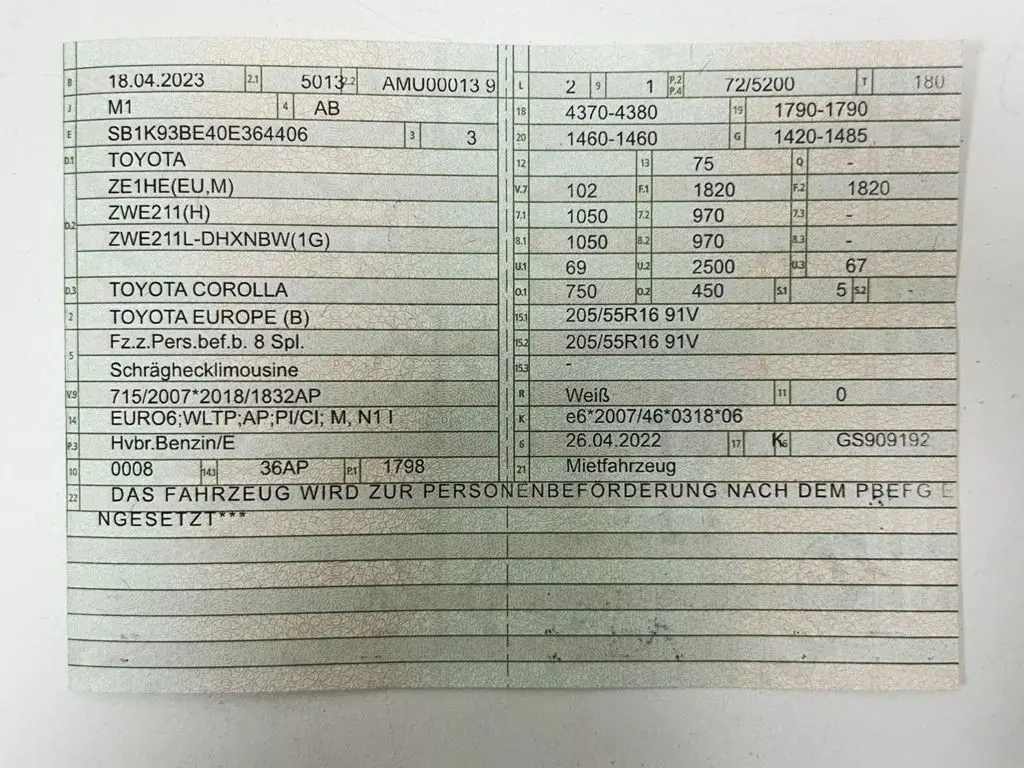 B 18.04.2023 2.1 5013 2.2 AMU00013 9
J M1 4 AB
E SB1K93BE40E364406 3 3
D.1 TOYOTA
D.2 ZE1HE(EU,M)
ZWE211(H)
ZWE211L-DHXNBW(1G)
D.3 TOYOTA COROLLA
2 TOYOTA EUROPE (B)
5 Fz.z.Pers.bef.b. 8 Spl.
Schräghecklimousine
V.9 715/2007*2018/1832AP
14 EURO6;WLTP;AP;PI/CI; M, N1 I
P.3 Hybr.Benzin/E
10 0008 14.1 36AP P.1 1798
L 2 9 1 P.2 P.4 72/5200 T 180
18 4370-4380 19 1790-1790
20 1460-1460 G 1420-1485
12 13 75 Q -
V.7 102 F.1 1820 F.2 1820
7.1 1050 7.2 970 7.3 -
8.1 1050 8.2 970 8.3 -
U.1 69 U.2 2500 U.3 67
O.1 750 O.2 450 S.1 5 S.2 -
15.1 205/55R16 91V
15.2 205/55R16 91V
15.3 -
R Weiß 11 0
K e6*2007/46*0318*06
6 26.04.2022 17 K 16 GS909192
21 Mietfahrzeug
22 DAS FAHRZEUG WIRD ZUR PERSONENBEFÖRDERUNG NACH DEM PBEFG E
NGESETZT***